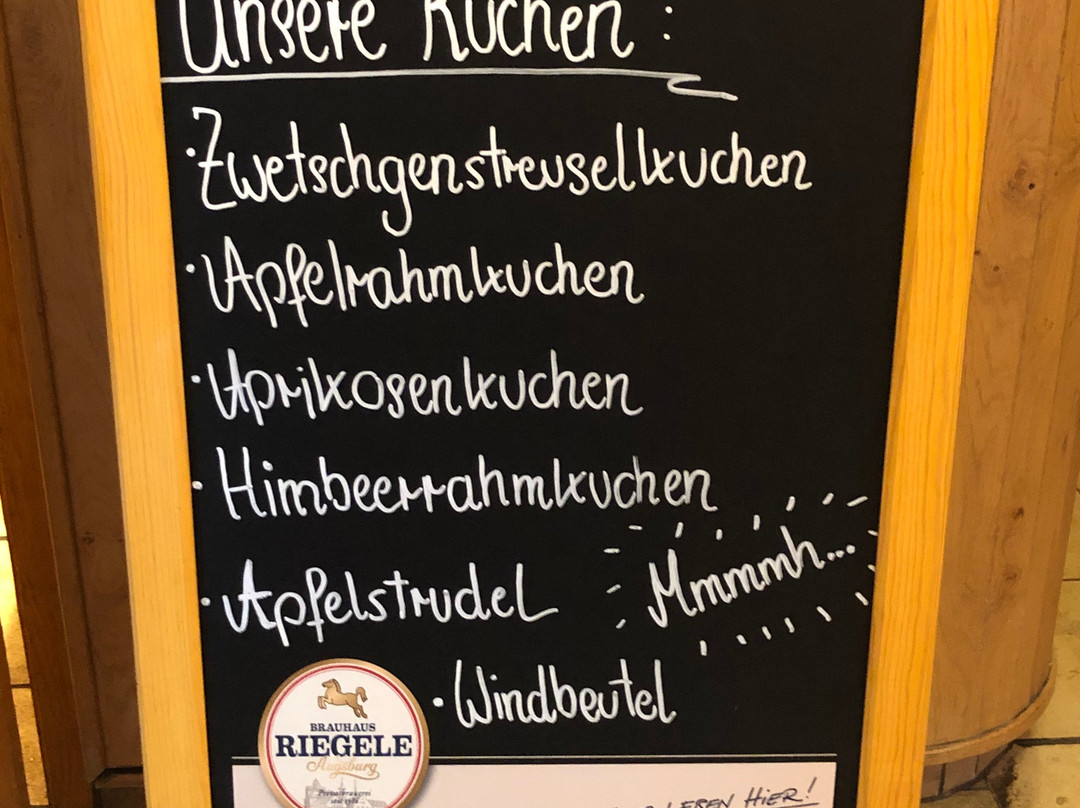 Unsere Kuchen:
· Zwetschgenstreuselkuchen
· Apfelrahmkuchen
· Aprikosenkuchen
· Himbeerrahmkuchen
· Apfelstrudel
Mmmmh...
· Windbeutel
BRAUHAUS
RIEGELE
Augsburg
Privatbrauerei
seit 1386
LEBEN HIER!